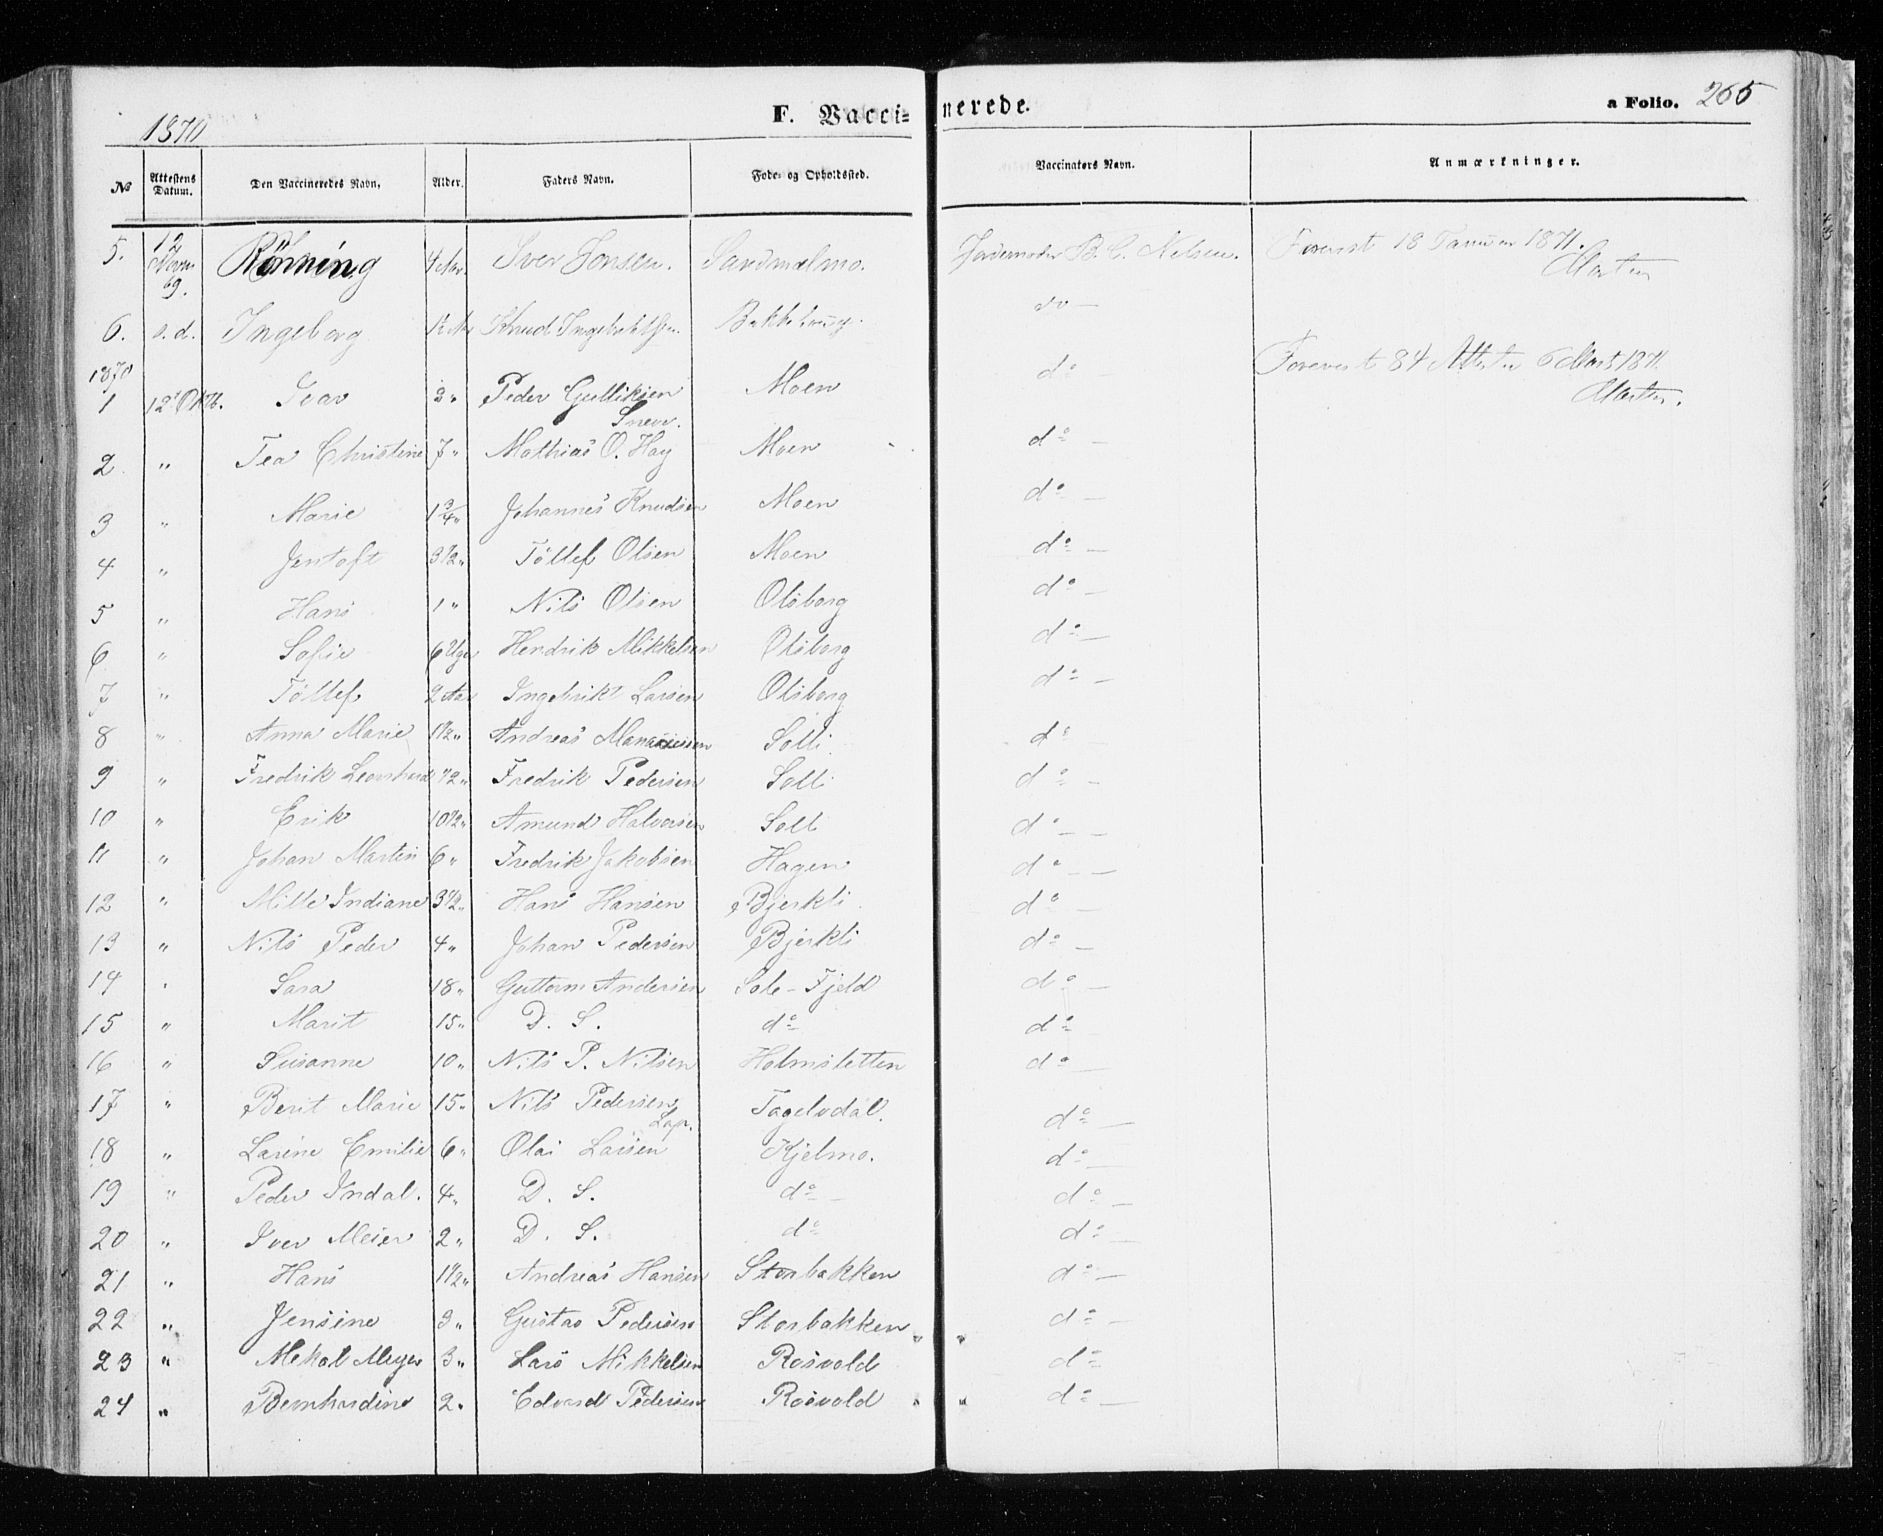 1870 F. Vaccinerede. a Folio. 265
No Attestens Datum. Den Vaccineredes Navn, Alder. Faders Navn. Føde- og Opholdssted. Vaccinators Navn. Anmærkninger.
5. 12 Novm 69. Rønning 4 Aar Iver Jonsen. Sandmælmo. Jordemoder B. C. Nelsen. Forevist 18 Januar 1871.
6. s. d. Ingeborg Knud Ingebrigtsen do —
1870 Forevist 84 Attester 6 Marts 1871.
1 12t Oktb. Ivar 3 " Peder Gulliksen Moen do —
2 " Tea Christine 7 " Mathias O. Hay Moen do —
3 " Marie 1 3/4 " Johannes Knudsen Moen do —
4 " Jentoft 3 1/2 " Tøllef Olsen Moen do —
5 " Hans 1 " Nils Olsen Olsborg do —
6 " Sofie 6 Uger Hendrik Mikkelsen Olsborg do —
7 " Tøllef 2 Aar Ingebrikt Larsen Olsborg do —
8 " Anna Marie 1 1/2 " Andreas Manassesen Solli do
9 " Fredrik Leonhard 1/2 " Fredrik Pedersen Solli do —
10 " Erik 10 1/2 " Amund Halvorsen Solli do — —
11 " Johan Martin 6 " Fredrik Jakobsen Hagen do — —
12 " Mille Indiane 3 1/2 " Hans Hansen Bjerkli do —
13 " Nils Peder 4 " Johan Pedersen Bjerkli do —
14 " Sara 18 " Guttorm Andersen Sole-Fjeld do —
15 " Marit 15 " D. S. do do
16 " Susanne 10 " Nils P. Nilsen Holmsletten do —
17 " Berit Marie 15 " Nils Pedersen Lap. Tagelvdal. do —
18 " Larine Emilie 6 " Olai Larsen Kjelmo. do —
19 " Peder Indal. 4 " D. S. do — do —
20 " Iver Meier 2 " D. S. do do —
21 " Hans 1 1/2 " Andreas Hansen Storbakken do —
22 " Jensine 3 " Gustav Pedersen Storbakken do —
23 " Mekal Meyer 3 " Lars Mikkelsen Rosvold do
24 " Bernhardine 2 " Edvard Pedersen Rosvold do —